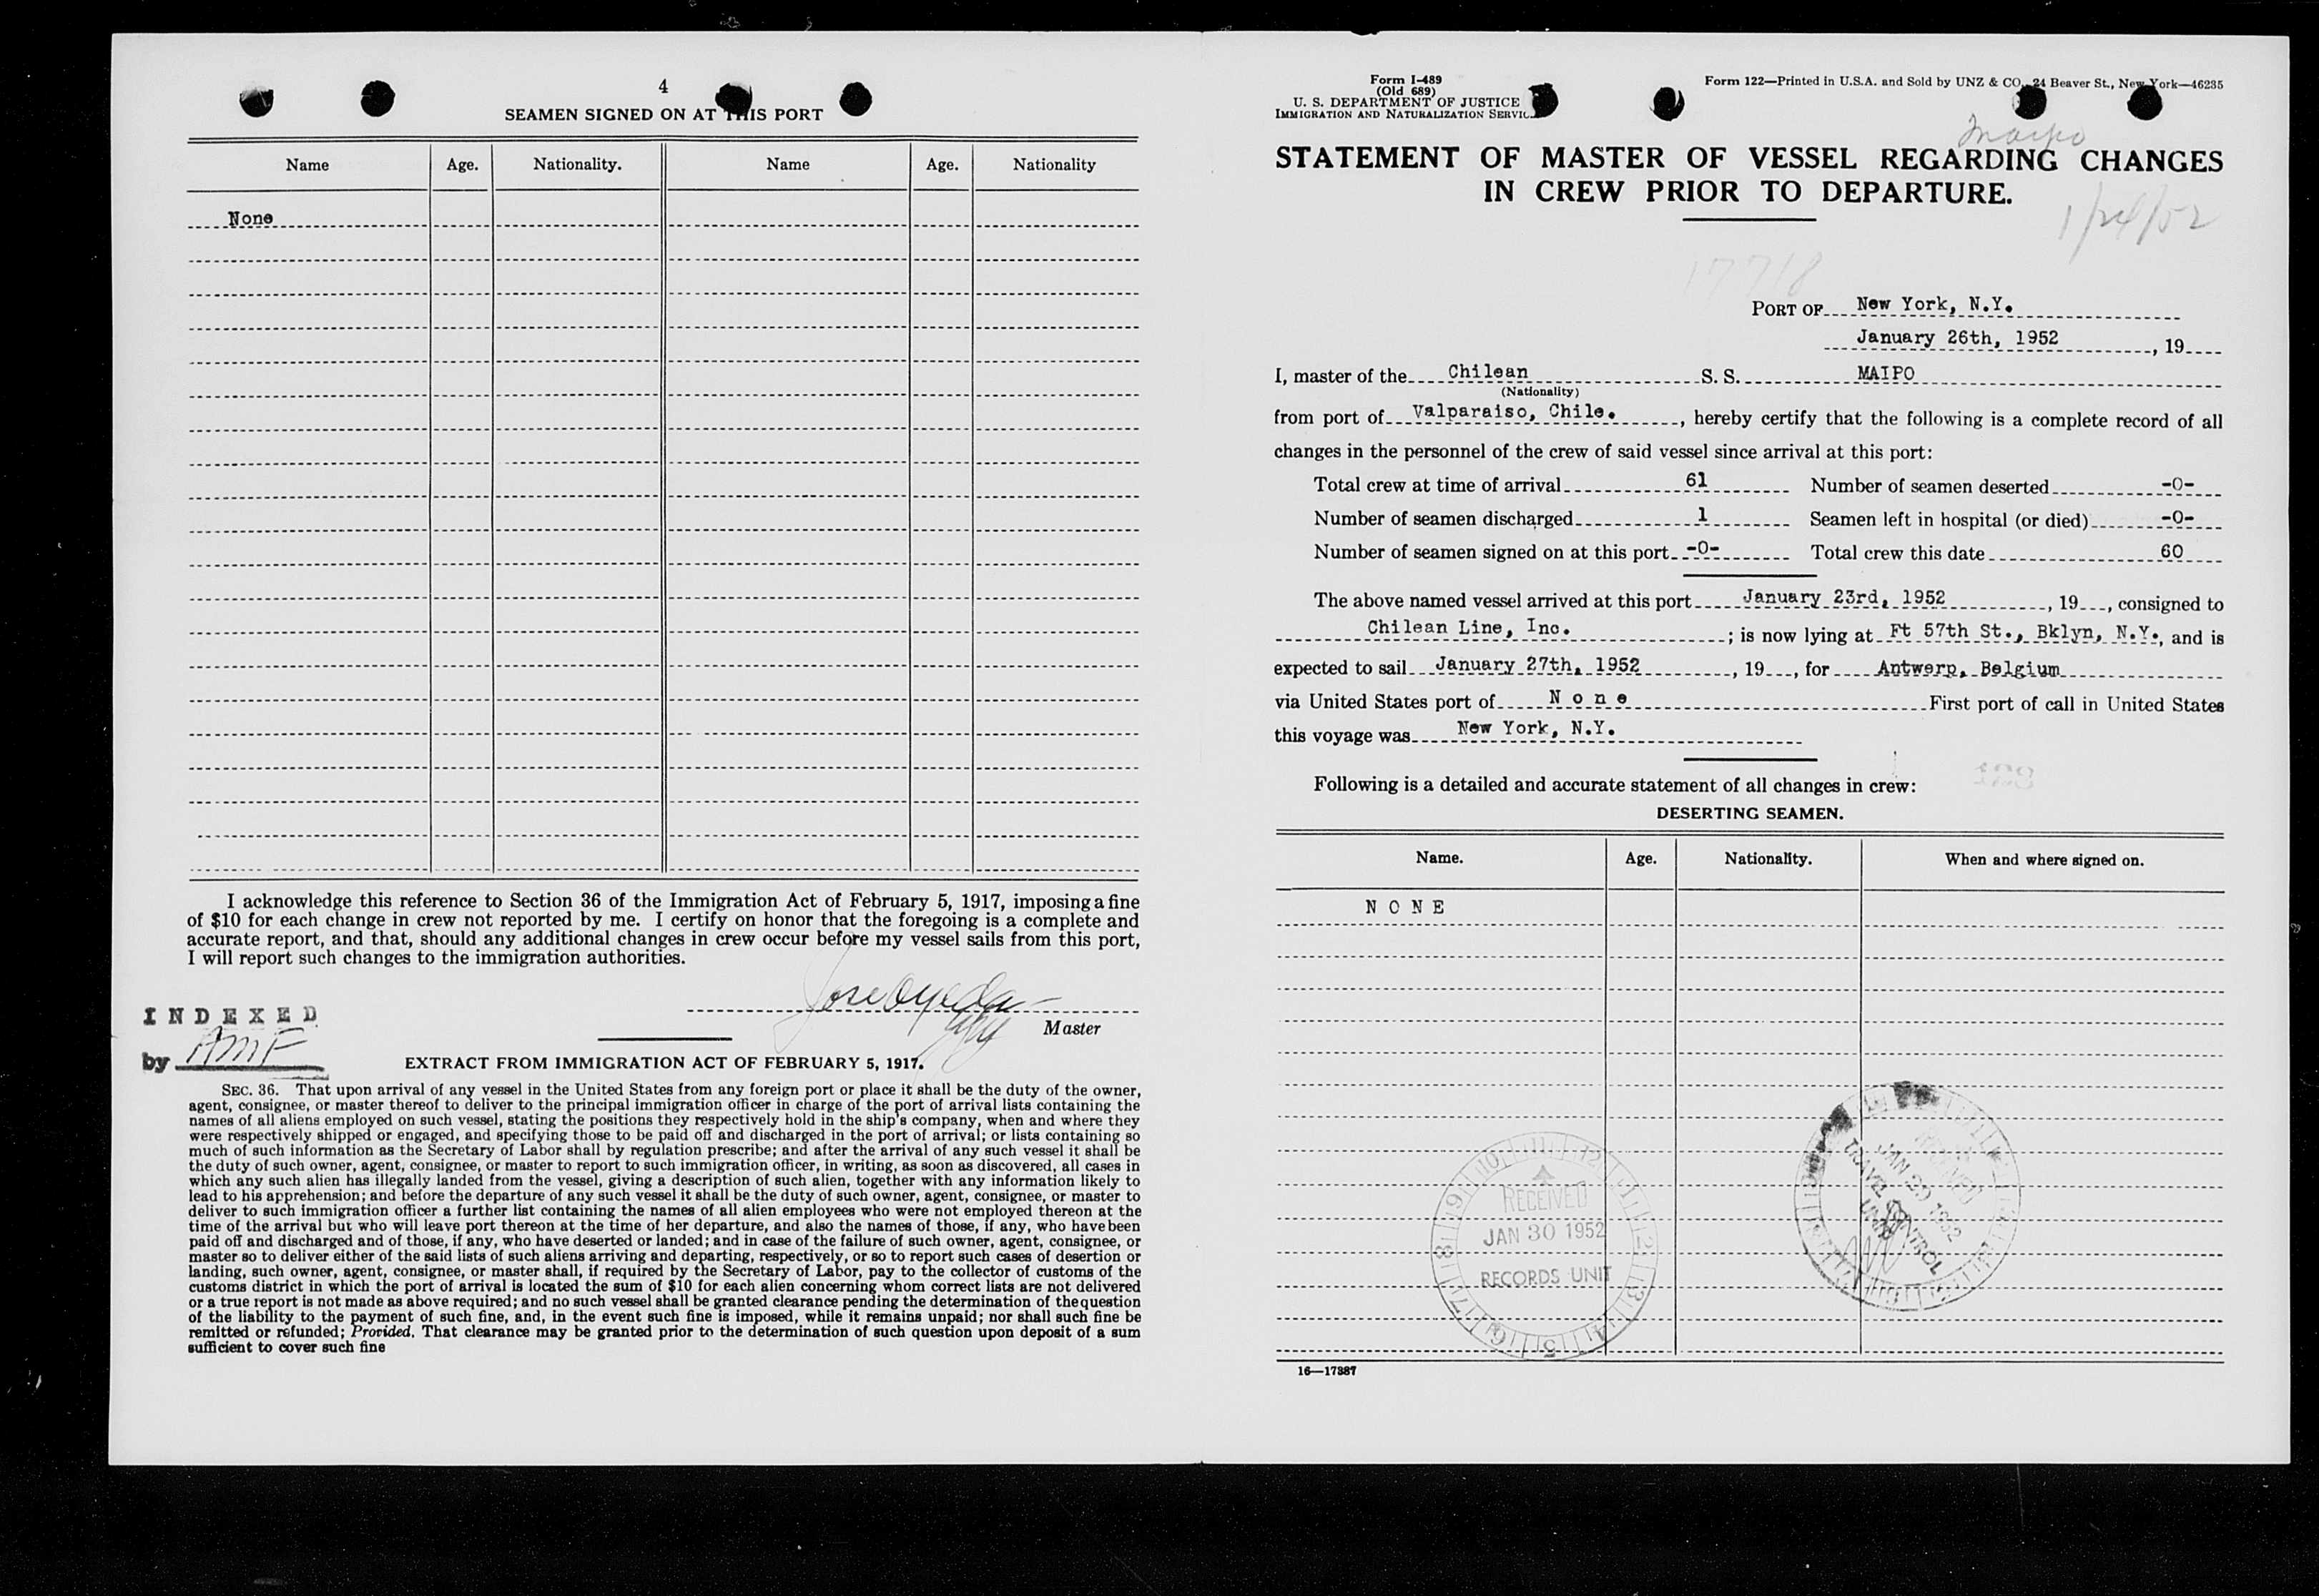 4
SEAMEN SIGNED ON AT THIS PORT
Name Age. Nationality. Name Age. Nationality
None
I acknowledge this reference to Section 36 of the Immigration Act of February 5, 1917, imposing a fine
of $10 for each change in crew not reported by me. I certify on honor that the foregoing is a complete and
accurate report, and that, should any additional changes in crew occur before my vessel sails from this port,
I will report such changes to the immigration authorities.
Master
INDEXED
by AMF
EXTRACT FROM IMMIGRATION ACT OF FEBRUARY 5, 1917.
SEC. 36. That upon arrival of any vessel in the United States from any foreign port or place it shall be the duty of the owner,
agent, consignee, or master thereof to deliver to the principal immigration officer in charge of the port of arrival lists containing the
names of all aliens employed on such vessel, stating the positions they respectively hold in the ship's company, when and where they
were respectively shipped or engaged, and specifying those to be paid off and discharged in the port of arrival; or lists containing so
much of such information as the Secretary of Labor shall by regulation prescribe; and after the arrival of any such vessel it shall be
the duty of such owner, agent, consignee, or master to report to such immigration officer, in writing, as soon as discovered, all cases in
which any such alien has illegally landed from the vessel, giving a description of such alien, together with any information likely to
lead to his apprehension; and before the departure of any such vessel it shall be the duty of such owner, agent, consignee, or master to
deliver to such immigration officer a further list containing the names of all alien employees who were not employed thereon at the
time of the arrival but who will leave port thereon at the time of her departure, and also the names of those, if any, who have been
paid off and discharged and of those, if any, who have deserted or landed; and in case of the failure of such owner, agent, consignee, or
master so to deliver either of the said lists of such aliens arriving and departing, respectively, or so to report such cases of desertion or
landing, such owner, agent, consignee, or master shall, if required by the Secretary of Labor, pay to the collector of customs of the
customs district in which the port of arrival is located the sum of $10 for each alien concerning whom correct lists are not delivered
or a true report is not made as above required; and no such vessel shall be granted clearance pending the determination of the question
of the liability to the payment of such fine, and, in the event such fine is imposed, while it remains unpaid; nor shall such fine be
remitted or refunded; Provided, That clearance may be granted prior to the determination of such question upon deposit of a sum
sufficient to cover such fine
Form I-489
(Old 689)
U. S. DEPARTMENT OF JUSTICE
IMMIGRATION AND NATURALIZATION SERVIC
Form 122—Printed in U.S.A. and Sold by UNZ & CO., 24 Beaver St., New York—46235
Maipo
STATEMENT OF MASTER OF VESSEL REGARDING CHANGES
IN CREW PRIOR TO DEPARTURE.
1/24/52
17718
PORT OF New York, N.Y.
January 26th, 1952, 19
I, master of the Chilean S. S. MAIPO
(Nationality)
from port of Valparaiso, Chile., hereby certify that the following is a complete record of all
changes in the personnel of the crew of said vessel since arrival at this port:
Total crew at time of arrival 61 Number of seamen deserted -0-
Number of seamen discharged 1 Seamen left in hospital (or died) -0-
Number of seamen signed on at this port -0- Total crew this date 60
The above named vessel arrived at this port January 23rd, 1952, 19, consigned to
Chilean Line, Inc.; is now lying at Ft 57th St., Bklyn, N.Y., and is
expected to sail January 27th, 1952, 19, for Antwerp, Belgium
via United States port of None First port of call in United States
this voyage was New York, N.Y.
Following is a detailed and accurate statement of all changes in crew:
DESERTING SEAMEN.
Name. Age. Nationality. When and where signed on.
NONE
RECEIVED
JAN 30 1952
RECORDS UNIT
RECEIVED
JAN 29 1952
TRAVEL CONTROL
UNIT
16—17887